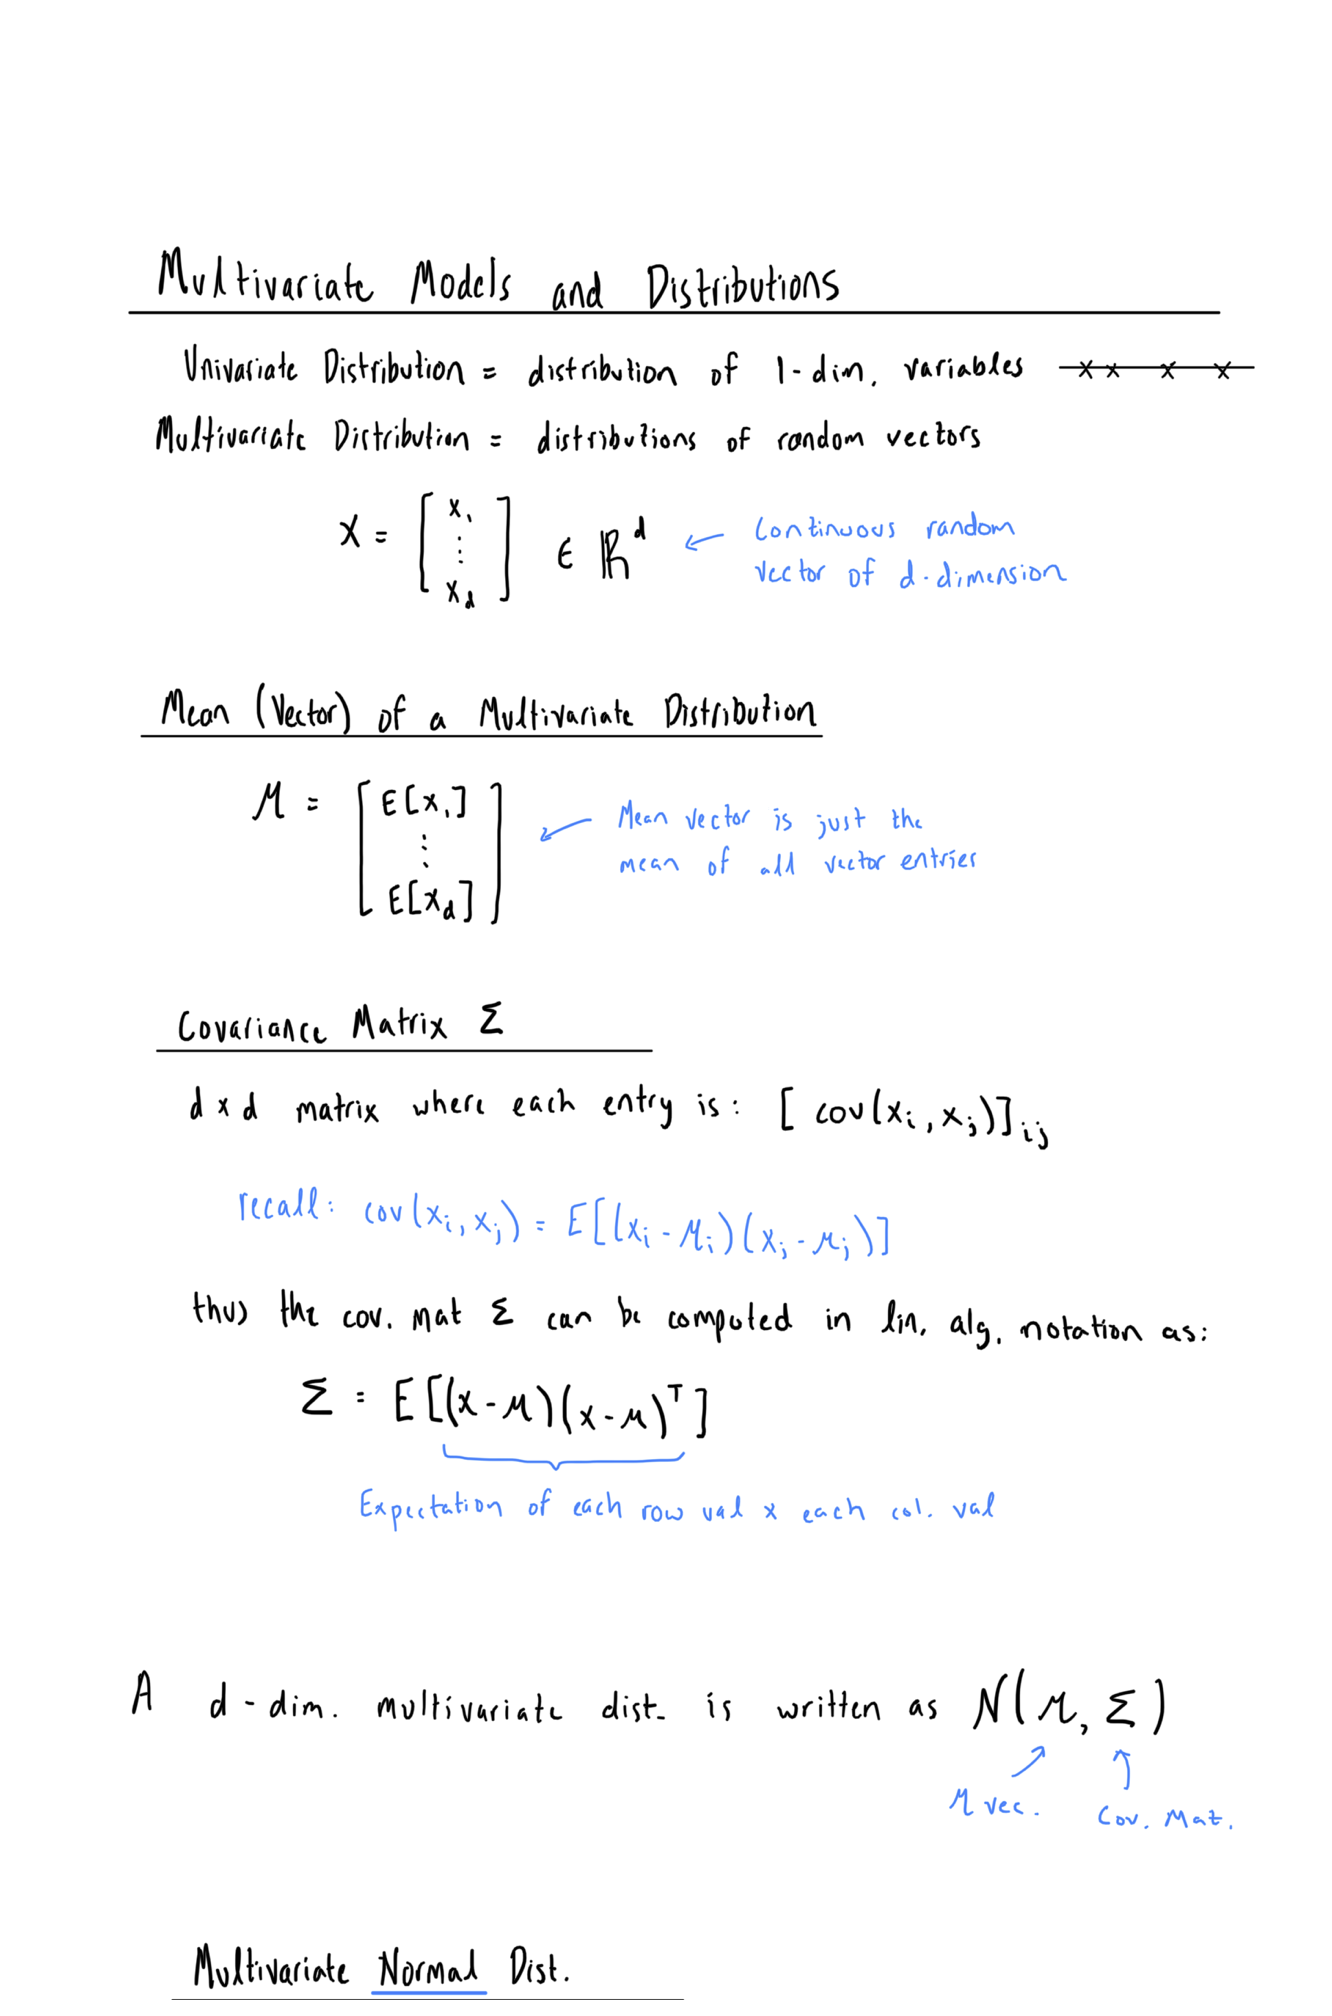 Multivariate Models and Distributions
Univariate Distribution = distribution of 1-dim. variables
Multivariate Distribution = distributions of random vectors
X = [ x₁ ⋮ x_d ] ∈ ℝ^d ← Continuous random
vector of d-dimension
Mean (Vector) of a Multivariate Distribution
μ = [ E[x₁] ⋮ E[x_d] ] ← Mean vector is just the
mean of all vector entries
Covariance Matrix Σ
d x d matrix where each entry is: [ cov(x_i, x_j)]_ij
recall: cov(x_i, x_j) = E[(x_i - μ_i)(x_j - μ_j)]
thus the cov. mat Σ can be computed in lin. alg. notation as:
Σ = E[(x-μ)(x-μ)^T]
Expectation of each row val x each col. val
A d-dim. multivariate dist. is written as N(μ, Σ)
μ vec. Cov. Mat.
Multivariate Normal Dist.